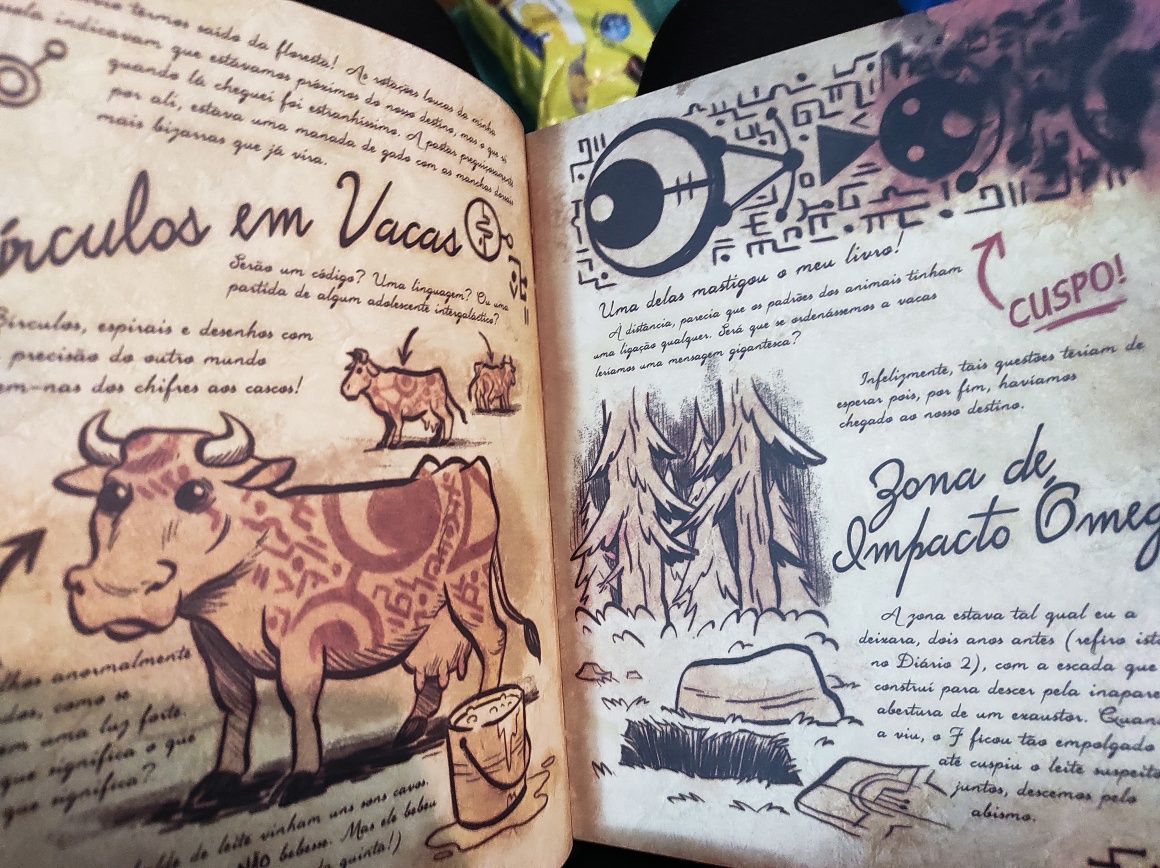 termos saído da floresta! As rotações loucas da minha
indicavam que estávamos próximos do nosso destino, mas o que vi
quando lá cheguei foi estranhíssimo. A pastar preguiçosamente
por ali, estava uma manada de gado com as manchas
mais bizarras que já vira.
írculos em Vacas
Serão um código? Uma linguagem? Ou uma
partida de algum adolescente intergaláctico?
Círculos, espirais e desenhos com
precisão do outro mundo
em-nas dos chifres aos cascos!
lhos anormalmente
dos, como se
em uma luz forte.
que significa o que
que significa?
balde de leite vinham uns sons cavos.
NÃO bebesse. Mas ele bebeu
da quinta!)
Uma delas mastigou o meu livro!
CUSPO!
À distância, parecia que os padrões dos animais tinham
uma ligação qualquer. Será que se ordenássemos a vacas
leríamos uma mensagem gigantesca?
Infelizmente, tais questões teriam de
esperar pois, por fim, havíamos
chegado ao nosso destino.
Zona de
Impacto Ómeg
A zona estava tal qual eu a
deixara, dois anos antes (refiro ist
no Diário 2), com a escada que
construí para descer pela inapare
abertura de um exaustor. Quan
a viu, o F ficou tão empolgado
até cuspiu o leite suspeito
juntos, descemos pelo
abismo.